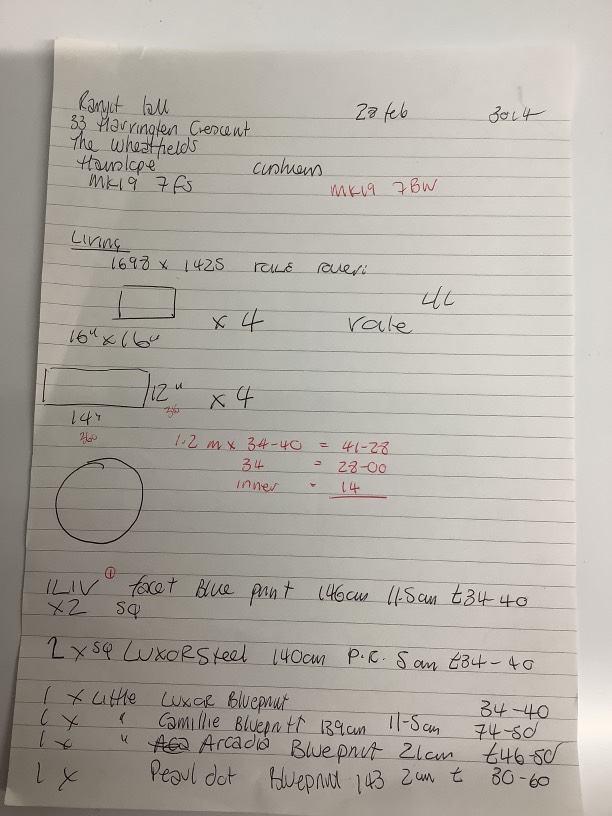 Ranjit Lall 28 feb 3014
33 Harrington Crescent
The Wheatfields
Hanslope cushions
MK19 7FS MK19 7BW
Living
1698 x 1425
4L
x 4 vole
16" x 16"
12" x 4
360
14"
360
1.2 m x 34-40 = 41-28
34 = 28-00
inner - 14
1 LIV facet Blue print 146cm 11.5cm £34-40
x2 sq
2 x sq LUXOR Steel 140cm P.R. 5cm £34-40
1 x Little Luxor Blueprint 34-40
1 x " Camillie Blueprint 139cm 11-5cm 74-50
1 x " Arcadia Blueprint 21cm £46-50
1 x Pearl dot Blueprint 143 2cm £ 30-60